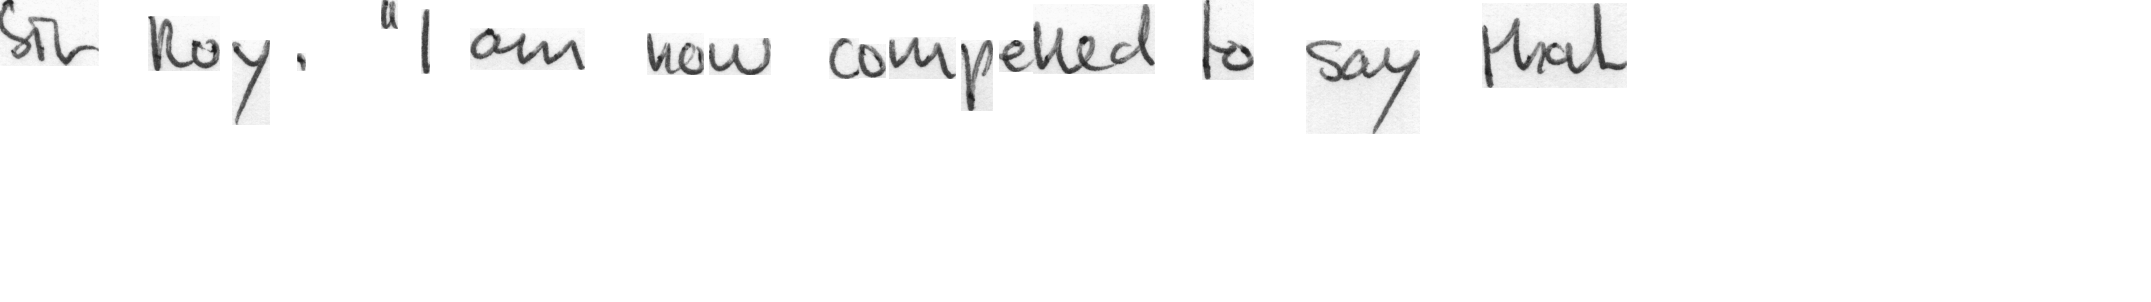 Sir Roy. "I am now compelled to say that